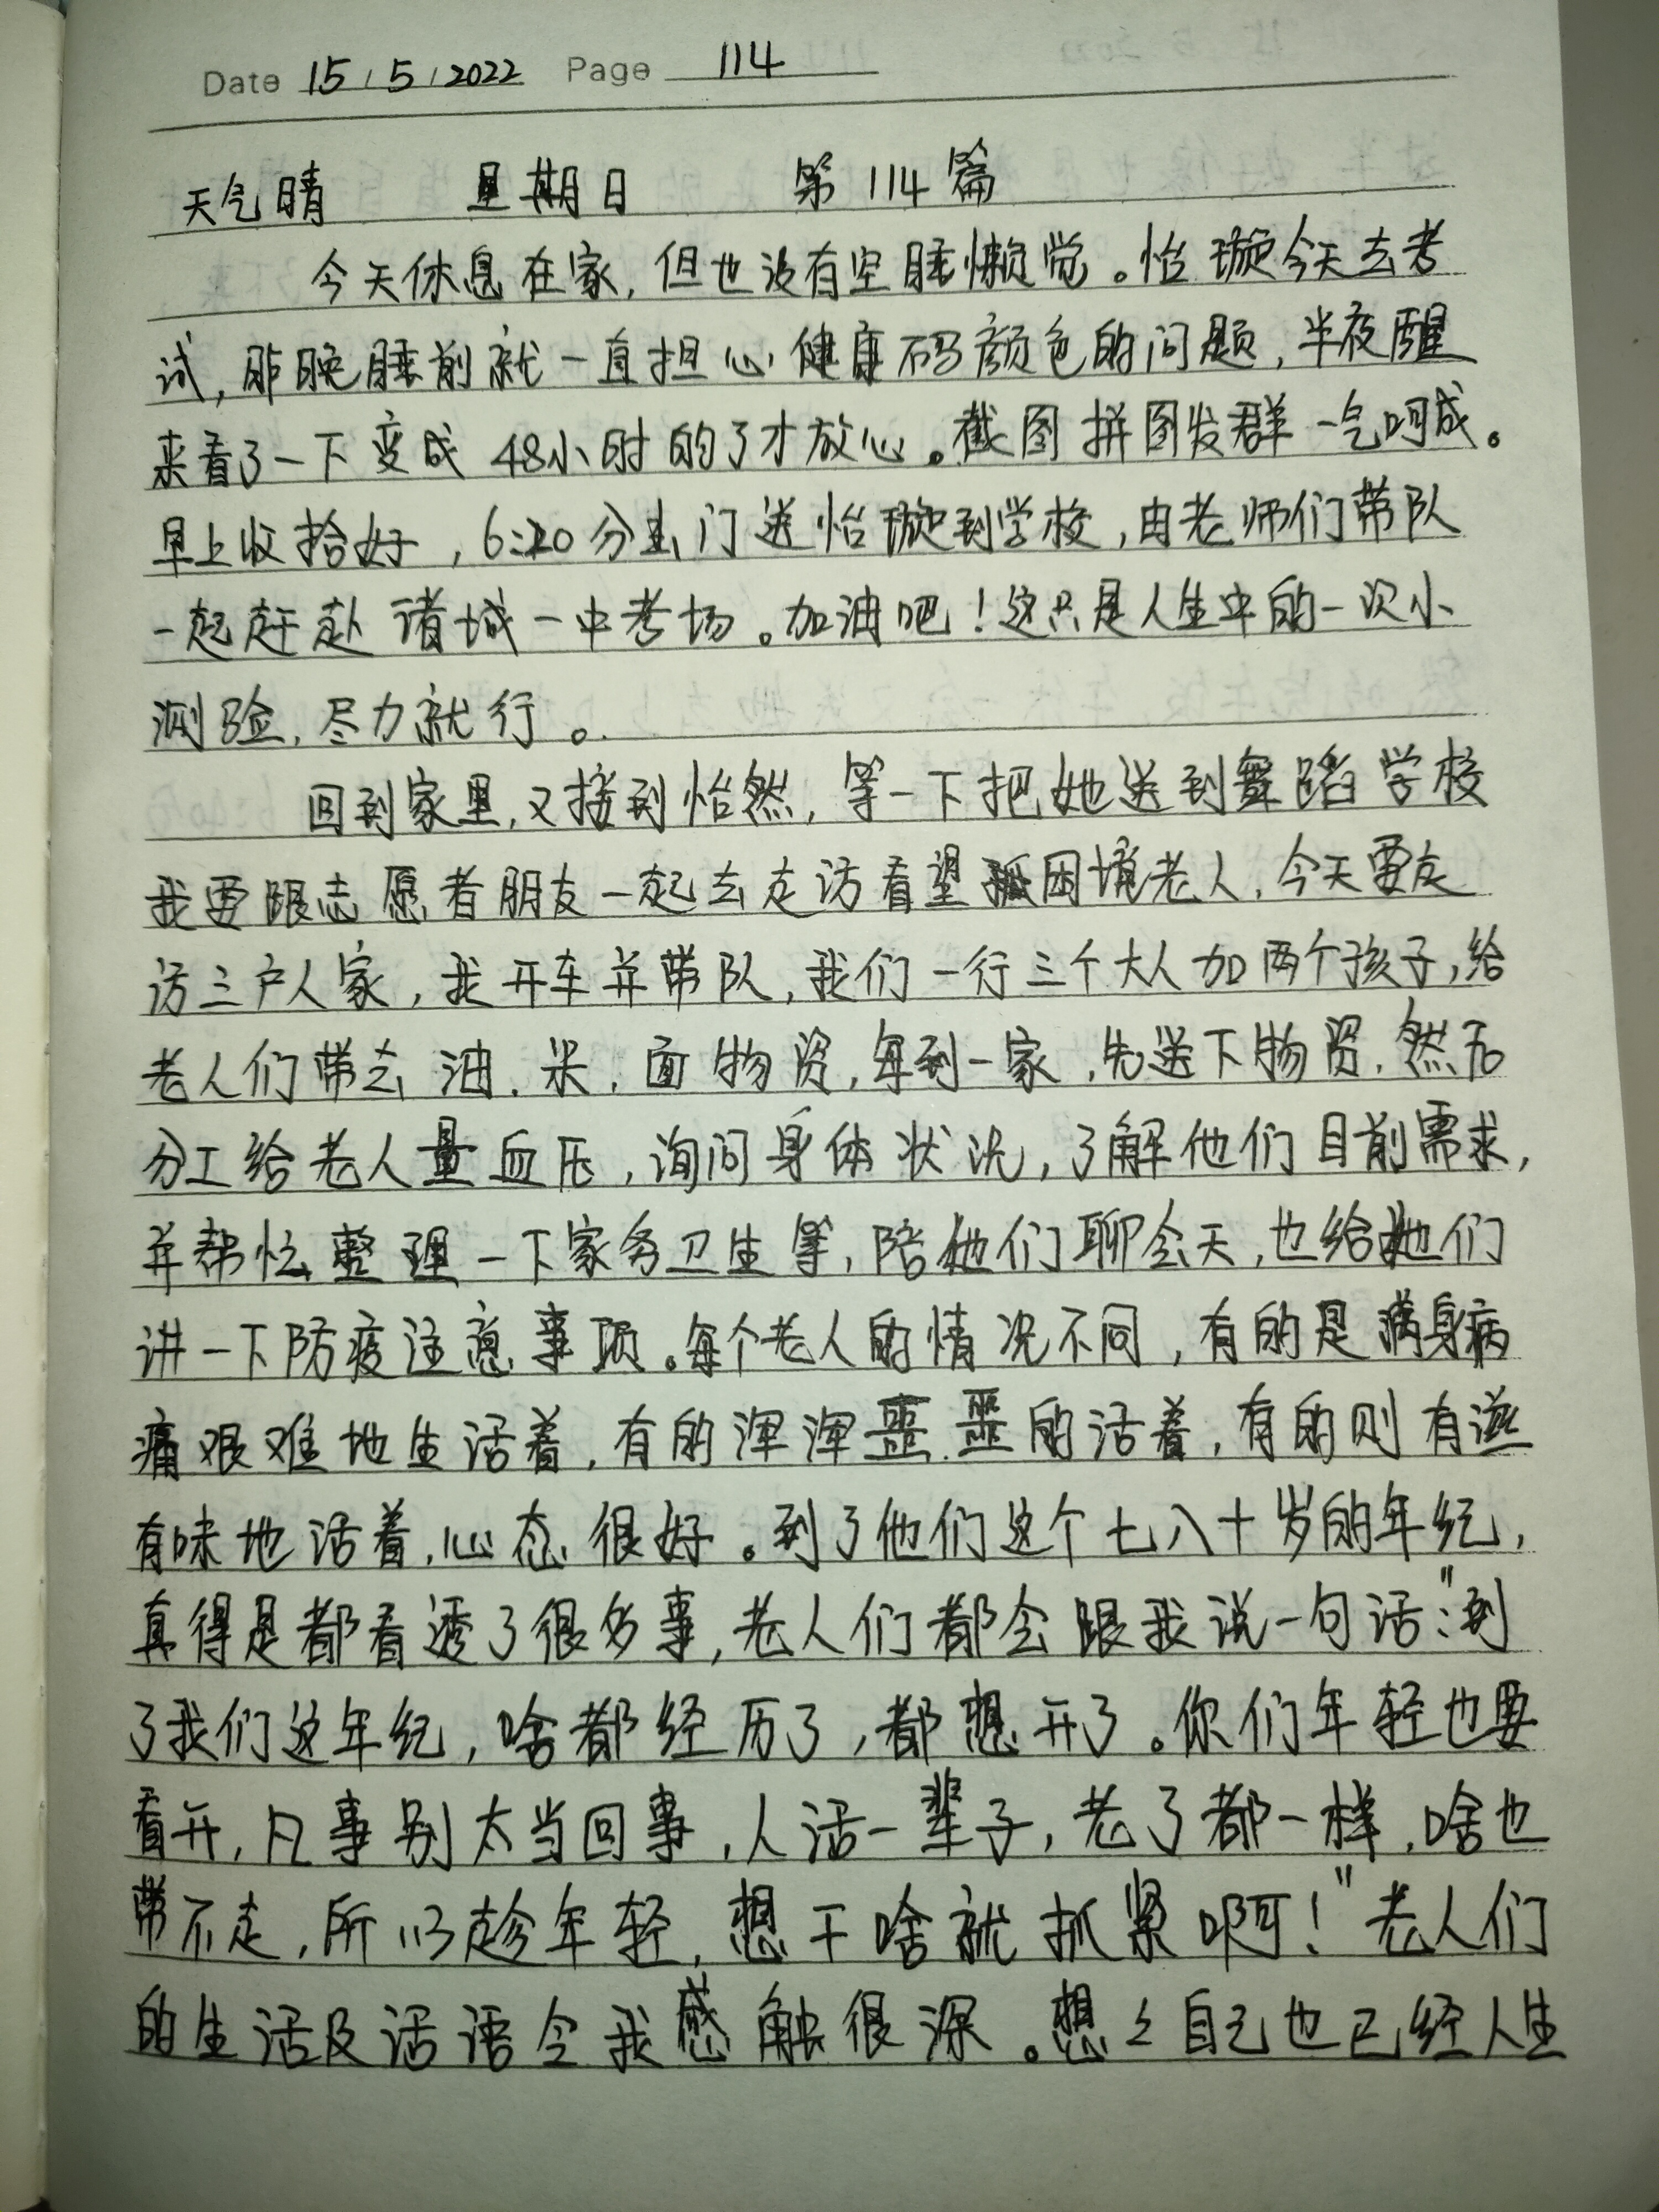 Date 15/5/2022 Page 114
天气晴 星期日 第114篇
今天休息在家,但也没有空睡懒觉。怡璇今天去考
试,昨晚睡前就一直担心健康码颜色的问题,半夜醒
来看了一下变成48小时的了才放心。截图拼图发群一气呵成。
早上收拾好,6:20分出门送怡璇到学校,由老师们带队
一起赶赴诸城一中考场。加油吧!这只是人生中的一次小
测验,尽力就行。
回到家里,又接到怡然,等一下把她送到舞蹈学校
我要跟志愿者朋友一起去走访看望孤困境老人,今天要走
访三户人家,我开车并带队,我们一行三个大人加两个孩子,给
老人们带去油.米,面物资,每到一家,先送下物资,然后
分工给老人量血压,询问身体状况,了解他们目前需求,
并帮忙整理一下家务卫生等,陪他们聊会天,也给她们
讲一下防疫注意事项。每个老人的情况不同,有的是满身病
痛艰难地生活着,有的浑浑噩噩的活着,有的则有滋
有味地活着,心态很好。到了他们这个七八十岁的年纪,
真得是都看透了很多事,老人们都会跟我说一句话:"到
了我们这年纪,啥都经历了,都想开了。你们年轻也要
看开,凡事别太当回事,人活一辈子,老了都一样,啥也
带不走,所以趁年轻,想干啥就抓紧啊!"老人们
的生活及话语令我感触很深。想々自己也已经人生